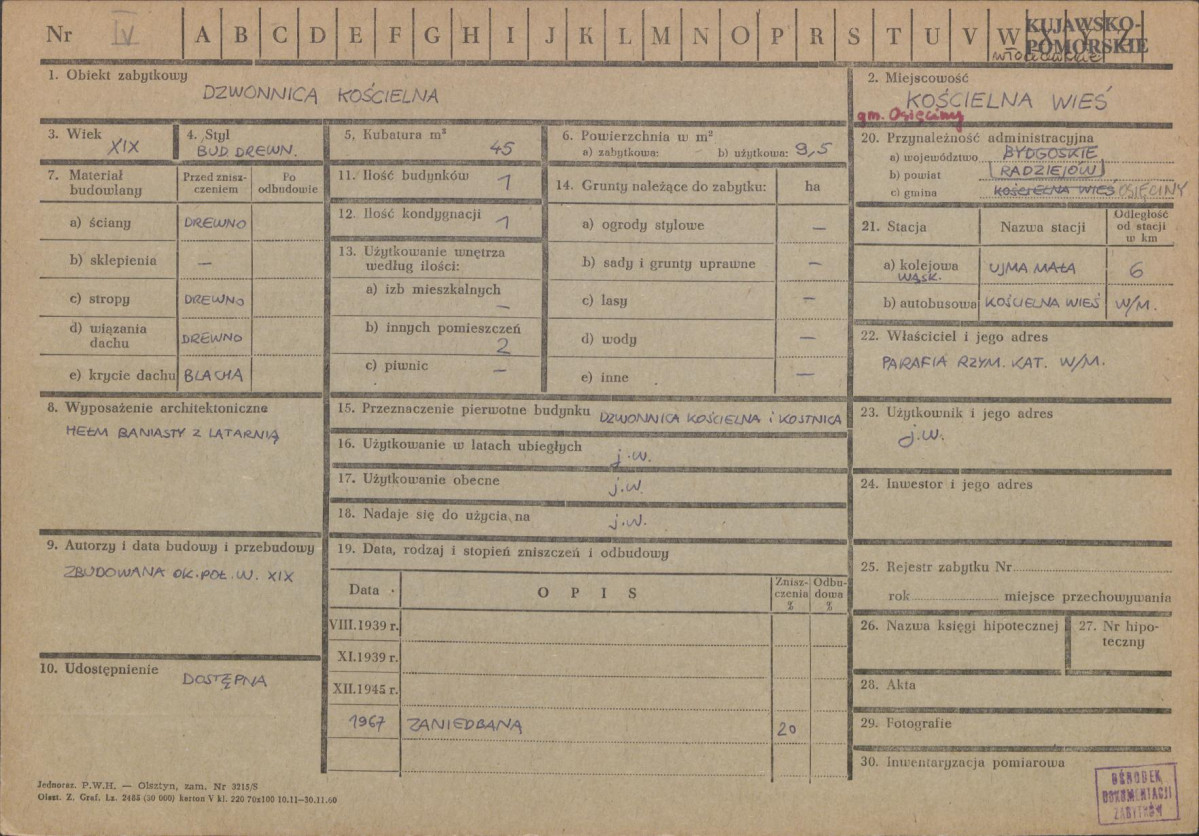 Nr IV A B C D E F G H I J K L M N O P R S T U V W X Y Z
KUJAWSKO-
POMORSKIE
włocławskie
1. Obiekt zabytkowy
DZWONNICA KOŚCIELNA
2. Miejscowość
KOŚCIELNA WIEŚ
gm. Osięciny
3. Wiek
XIX
4. Styl
BUD DREWN.
5. Kubatura m²
45
6. Powierzchnia w m²
a) zabytkowa: b) użytkowa: 9,5
7. Materiał
budowlany
Przed znisz-
czeniem
Po
odbudowie
a) ściany DREWNO
b) sklepienia —
c) stropy DREWNO
d) wiązania
dachu DREWNO
e) krycie dachu BLACHA
8. Wyposażenie architektoniczne
HEŁM BANIASTY Z LATARNIĄ
9. Autorzy i data budowy i przebudowy
ZBUDOWANA OK. POŁ. W. XIX
10. Udostępnienie
DOSTĘPNA
11. Ilość budynków 1
12. Ilość kondygnacji 1
13. Użytkowanie wnętrza
według ilości:
a) izb mieszkalnych
—
b) innych pomieszczeń
2
c) piwnic —
14. Grunty należące do zabytku: ha
a) ogrody stylowe —
b) sady i grunty uprawne —
c) lasy —
d) wody —
e) inne —
15. Przeznaczenie pierwotne budynku DZWONNICA KOŚCIELNA i KOSTNICA
16. Użytkowanie w latach ubiegłych j.w.
17. Użytkowanie obecne j.w.
18. Nadaje się do użycia na j.w.
19. Data, rodzaj i stopień zniszczeń i odbudowy
Data O P I S
Znisz-
czenia
%
Odbu-
dowa
%
VIII.1939 r.
XI.1939 r.
XII.1945 r.
1967 ZANIEDBANA 20
20. Przynależność administracyjna
a) województwo BYDGOSKIE
b) powiat RADZIEJÓW
c) gmina KOŚCIELNA WIEŚ OSIĘCINY
21. Stacja Nazwa stacji
Odległość
od stacji
w km
a) kolejowa UJMA MAŁA 6
WĄSK.
b) autobusowa KOŚCIELNA WIEŚ W/M.
22. Właściciel i jego adres
PARAFIA RZYM. KAT. W/M.
23. Użytkownik i jego adres
j.w.
24. Inwestor i jego adres
25. Rejestr zabytku Nr
rok miejsce przechowywania
26. Nazwa księgi hipotecznej
27. Nr hipo-
teczny
28. Akta
29. Fotografie
30. Inwentaryzacja pomiarowa
OŚRODEK
DOKUMENTACJI
ZABYTKÓW
Jednoraz. P.W.H. — Olsztyn, zam. Nr 3215/S
Olszt. Z. Graf. Lz. 2485 (30 000) karton V kl. 220 70x100 10.11—30.11.60